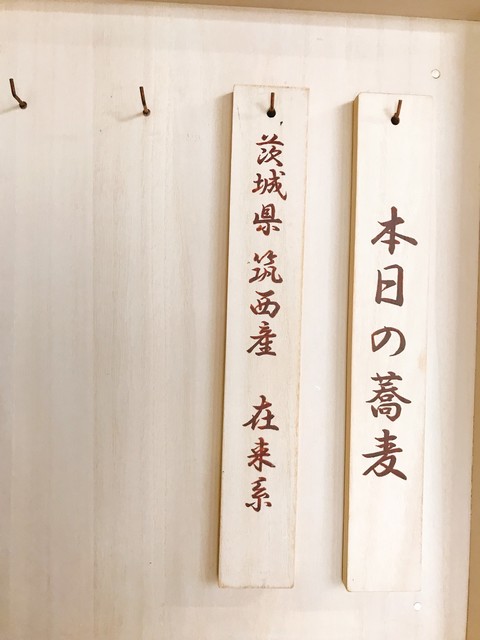 本日の蕎麦
茨城県 筑西産 在来系